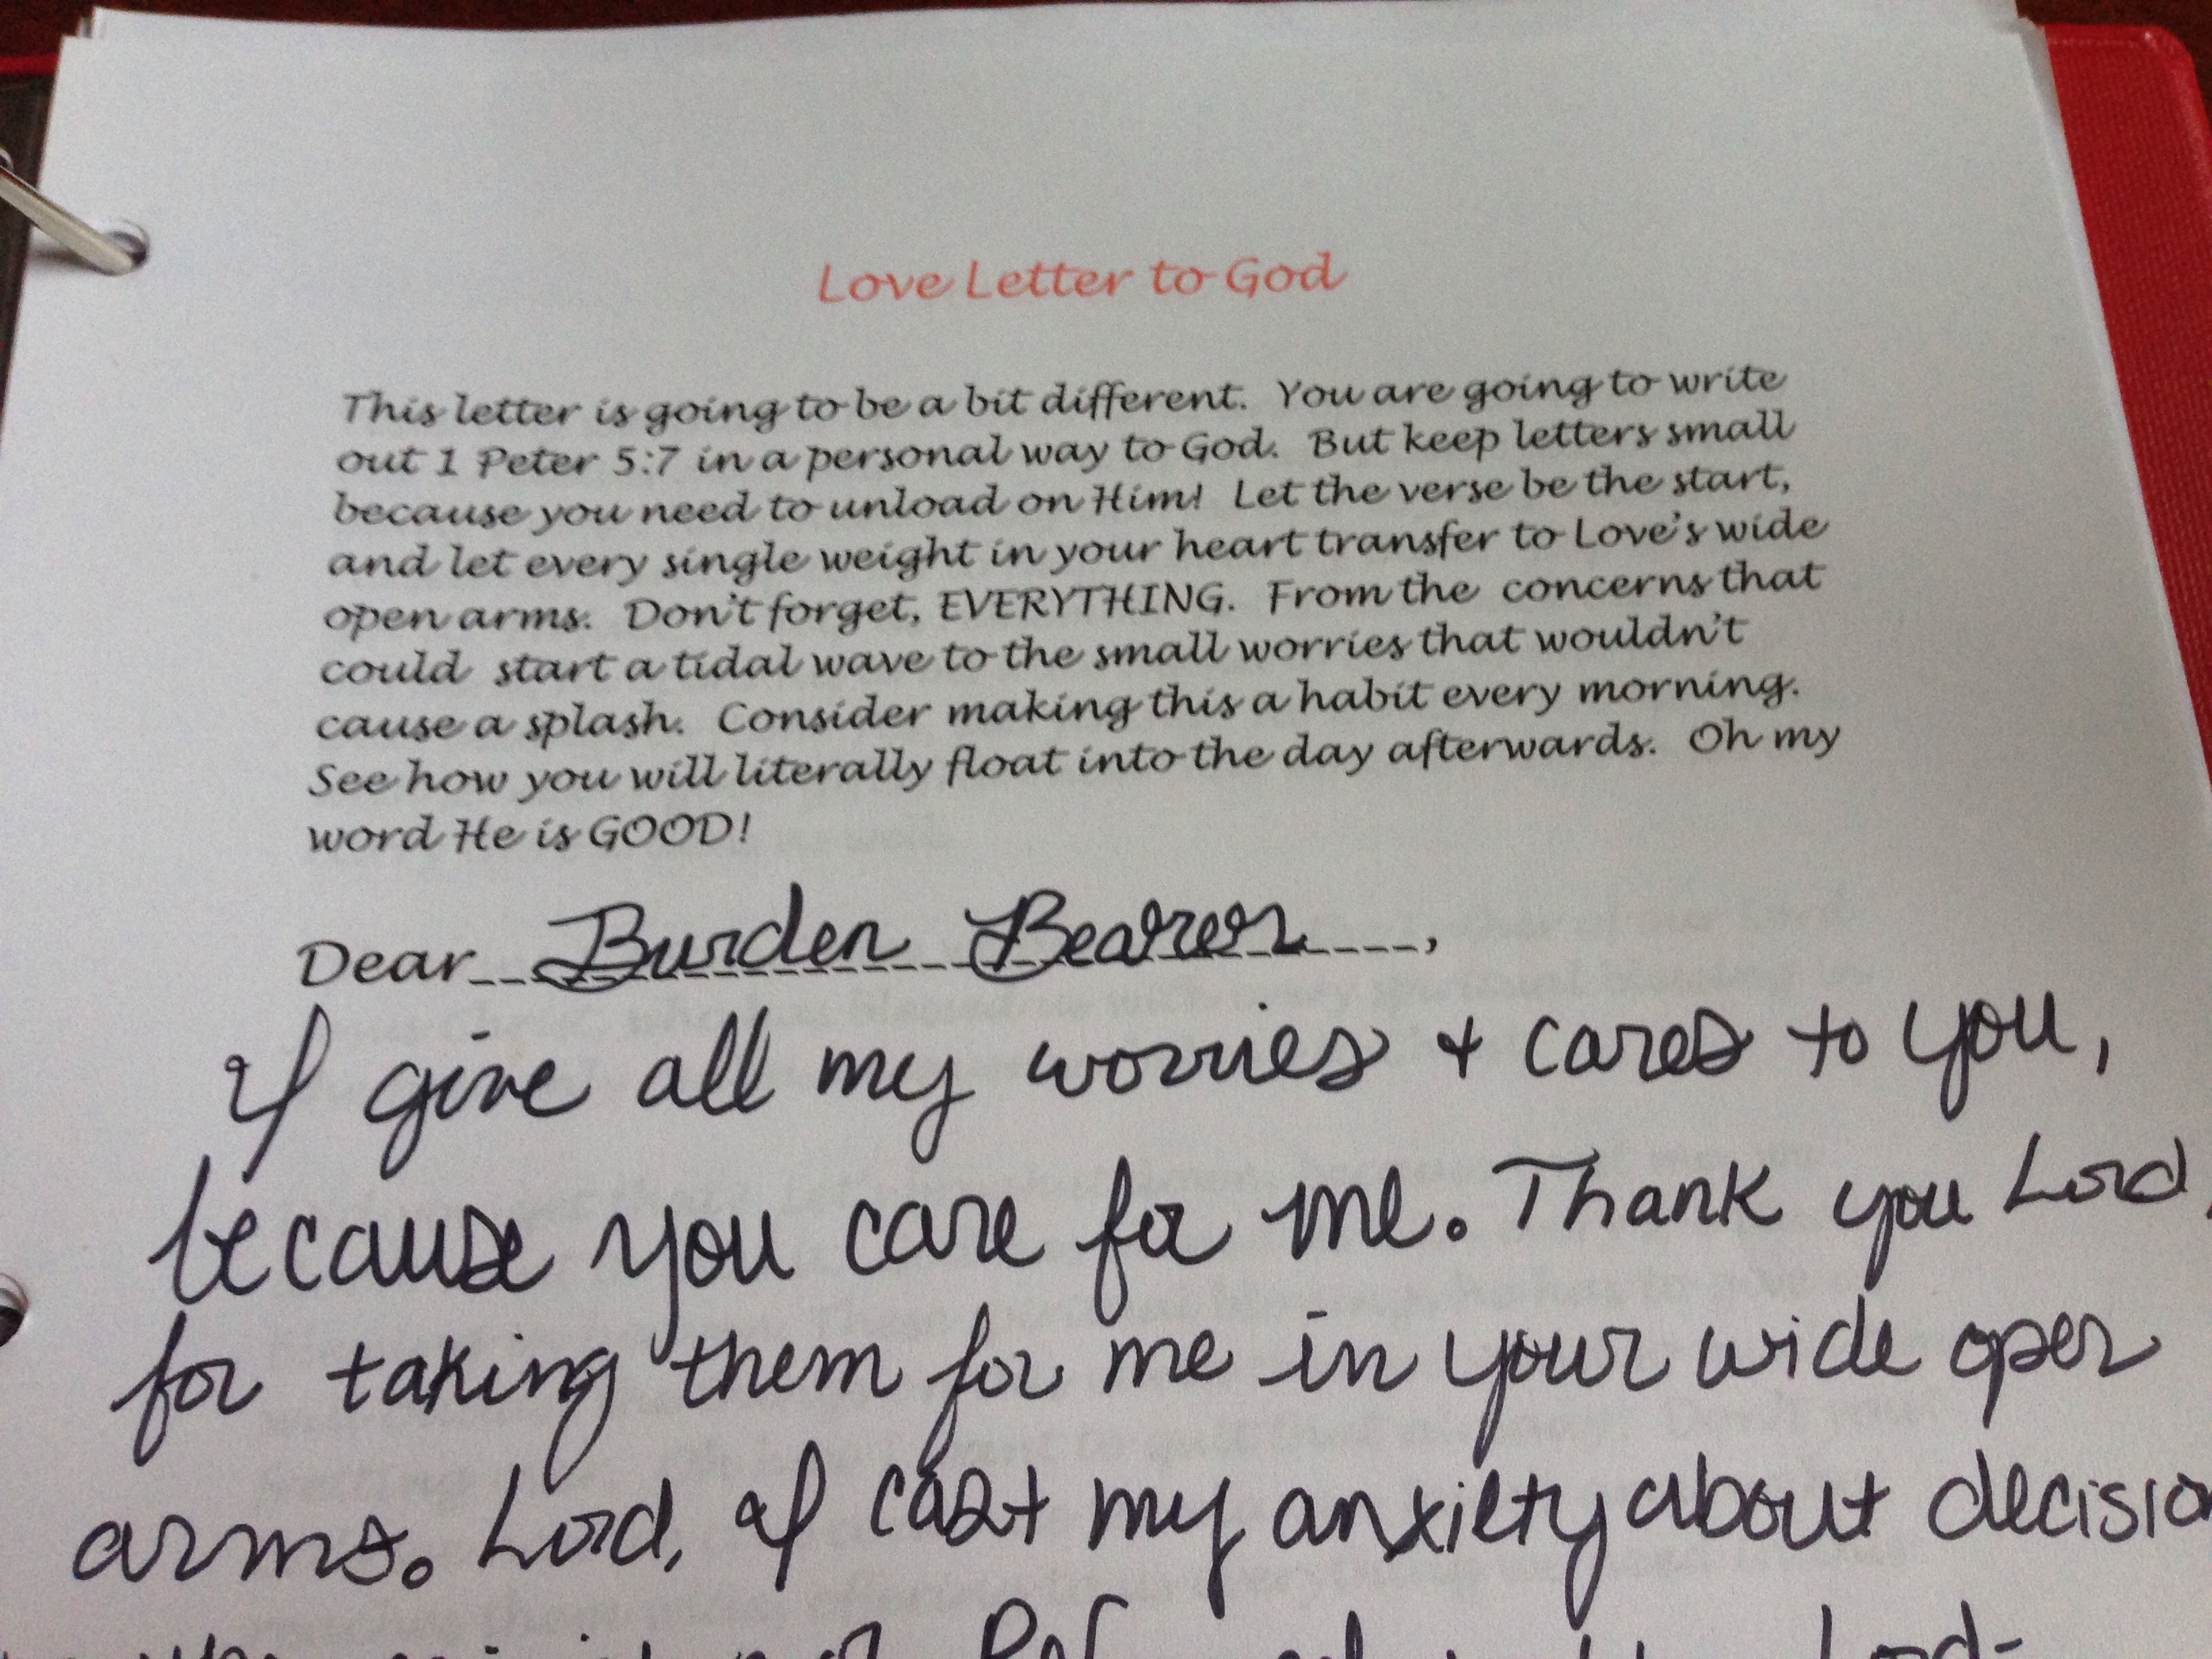 Love Letter to God
This letter is going to be a bit different. You are going to write
out 1 Peter 5:7 in a personal way to God. But keep letters small
because you need to unload on Him! Let the verse be the start,
and let every single weight in your heart transfer to Love's wide
open arms. Don't forget, EVERYTHING. From the concerns that
could start a tidal wave to the small worries that wouldn't
cause a splash. Consider making this a habit every morning.
See how you will literally float into the day afterwards. Oh my
word He is GOOD!
Dear Burden Bearer,
I give all my worries + cares to you,
because you care for me. Thank you Lord,
for taking them for me in your wide open
arms. Lord, I cast my anxiety about decisio
Lord-